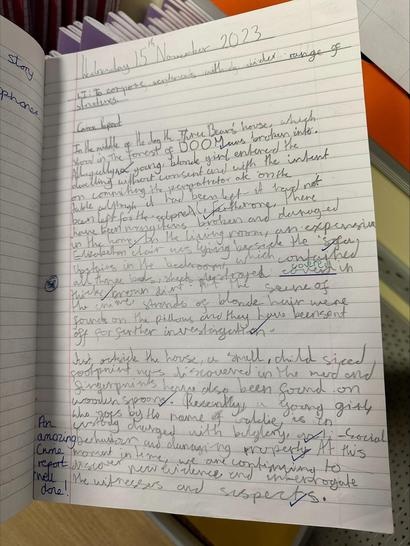 story
phone
Wednesday 15th November 2023
LI: To compose sentences with a wider range of
structures.
Crime Report
In the middle of the day the Three Bears' house, which
stood in the forest of DOOM was broken into.
Allegedly, a young, blonde girl entered the
dwelling without consent and with the intent
on committing the perpetrator ate on the
table although it had been left it had not
been left for the culprit, furthermore, there
have been many items broken and damaged
in the home. In the living room, an expensive
Elizabethan chair was lying beside the sofa,
Upstairs in the bedroom, which contained
all three beds, sheets destroyed covered in
thick, brown dirt. At the scene of
the crime strands of blonde hair were
found on the pillows and they have been sent
off for further investergation.
Just outside the house, a small, child sized
footprint was discovered in the mud and
fingerprints have also been found on
wooden spoons. Recently, a young girl,
who goes by the name of Goldie, is
being charged with burglery, anti-social
behaviour and damaging property. At this
moment in time, we are continuing to
discover new evidence and interrogate
the witnesses and suspects.
An
amazing
Crime
report
Well
done!